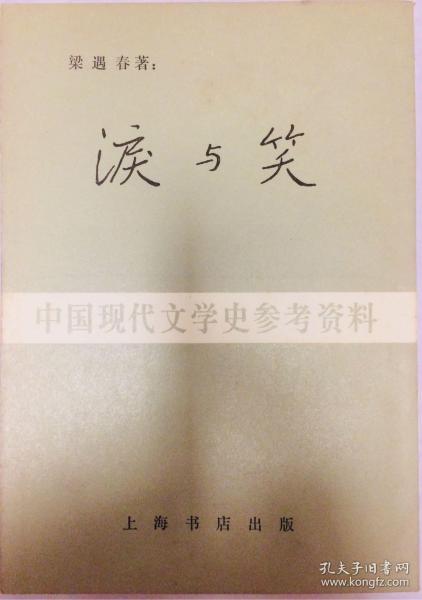 梁遇春著：
淚与笑
中国现代文学史参考资料
上海书店出版
孔夫子旧书网